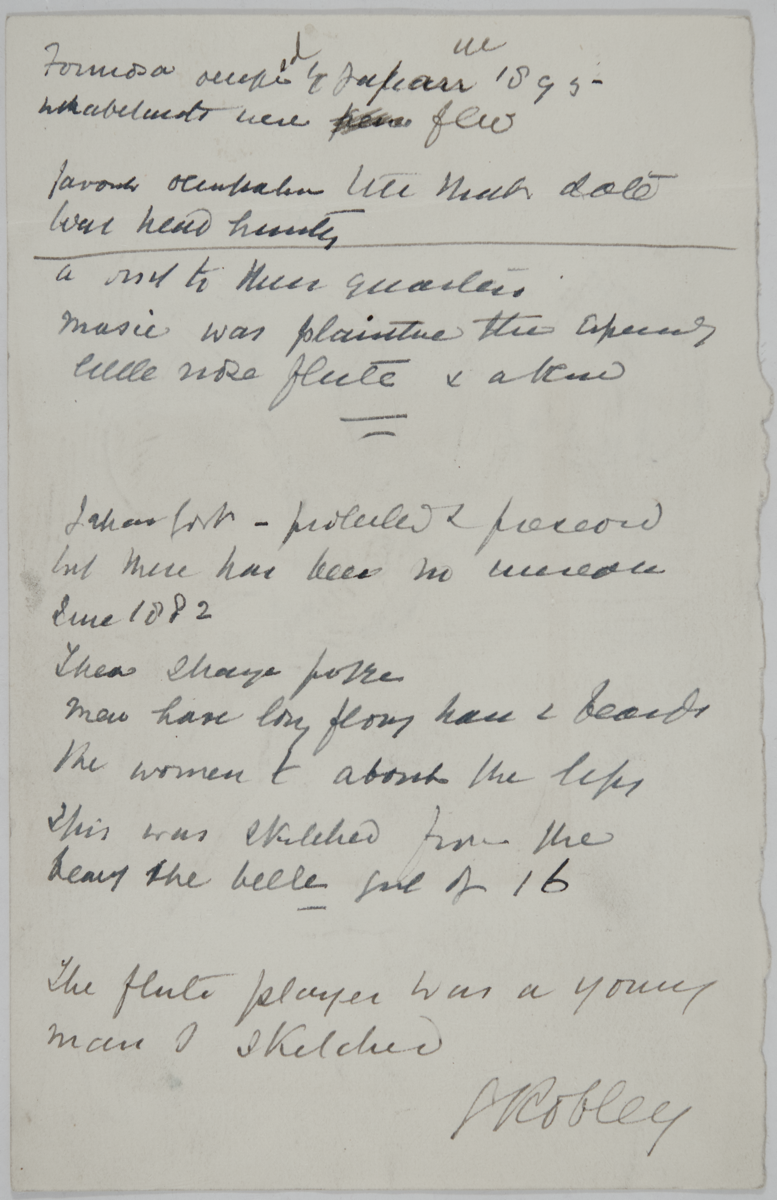 Formosa occupied by Japan in 1895
inhabitants were few
favourite occupation till that date
was head hunting
a visit to their quarters
Music was plaintive the
little nose flute &
Japan took - protected &
but there has been no increase
Since 1882
These strange folks
Men have long flowing hair & beards
the women t about the lips
This was sketched from the
beauty the belle girl of 16
The flute player was a young
man I sketched
G Robley